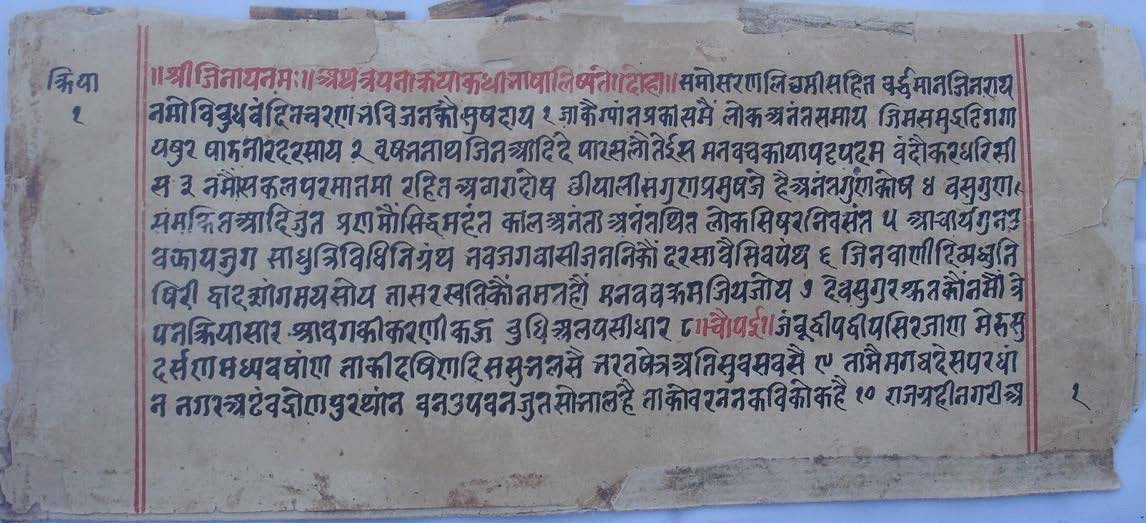 क्रिया
१
॥श्रीजिनायनमः॥अथत्रेपनक्रियाकथाभाषालिष्यंते॥दोहा॥ समोसरणलिछमीसहित वर्द्धमानजिनराय
नमौविबुधवंदितचरण भविजनकौंसुषदाय १ जाकैग्यांनप्रकासमैं लोकअनंतसमाय जिमसमुद्रढिगगा
यषुर षातनीरदरसाय २ वृषभनाथजिनआदिदे पारसलौंतेईस मनवचकायापदपदम वंदौंकरधरिसी
स ३ नमौंसकलपरमातमा रहितअठारादोष छीयालीसगुणप्रमुषजे हैअनंतगुणकोष ४ वसुगुण
संमकितआदिजुत प्रणमौंसिद्धमहंत कालअनंतानंतथित लोकसिषरनिवसंत ५ आचार्यगुनउ
वझायजुग साधुत्रिविधिनिग्रंथ भवजगवासीजननिकौं दरसावैसिवपंथ ६ जिनवाणीदिव्यध्वनि
षिरी द्वादशांगमयसोय तासरस्वतिकौंनमतहौं मनवचक्रमजियजोय ७ देवसुगुरुश्रुतकौंनमौं त्रे
पनक्रियासार श्रावगकीकरणीकहूं बुधिअलपसीधार ८॥चौपई॥जंबूदीपदीपसिरजांण मेरुसु
दर्सणमध्यवषांण ताकीदषिणदिससुभलसै भरतषेत्रअतिसुवसवसै ९ तामैमगधदेसपरधां
न नगरषटंवद्रोणपुरथांन वनउपवनजुतसोभालहै ताकोवरननकविकोकहै १० राजग्रहीनगरीअ
१